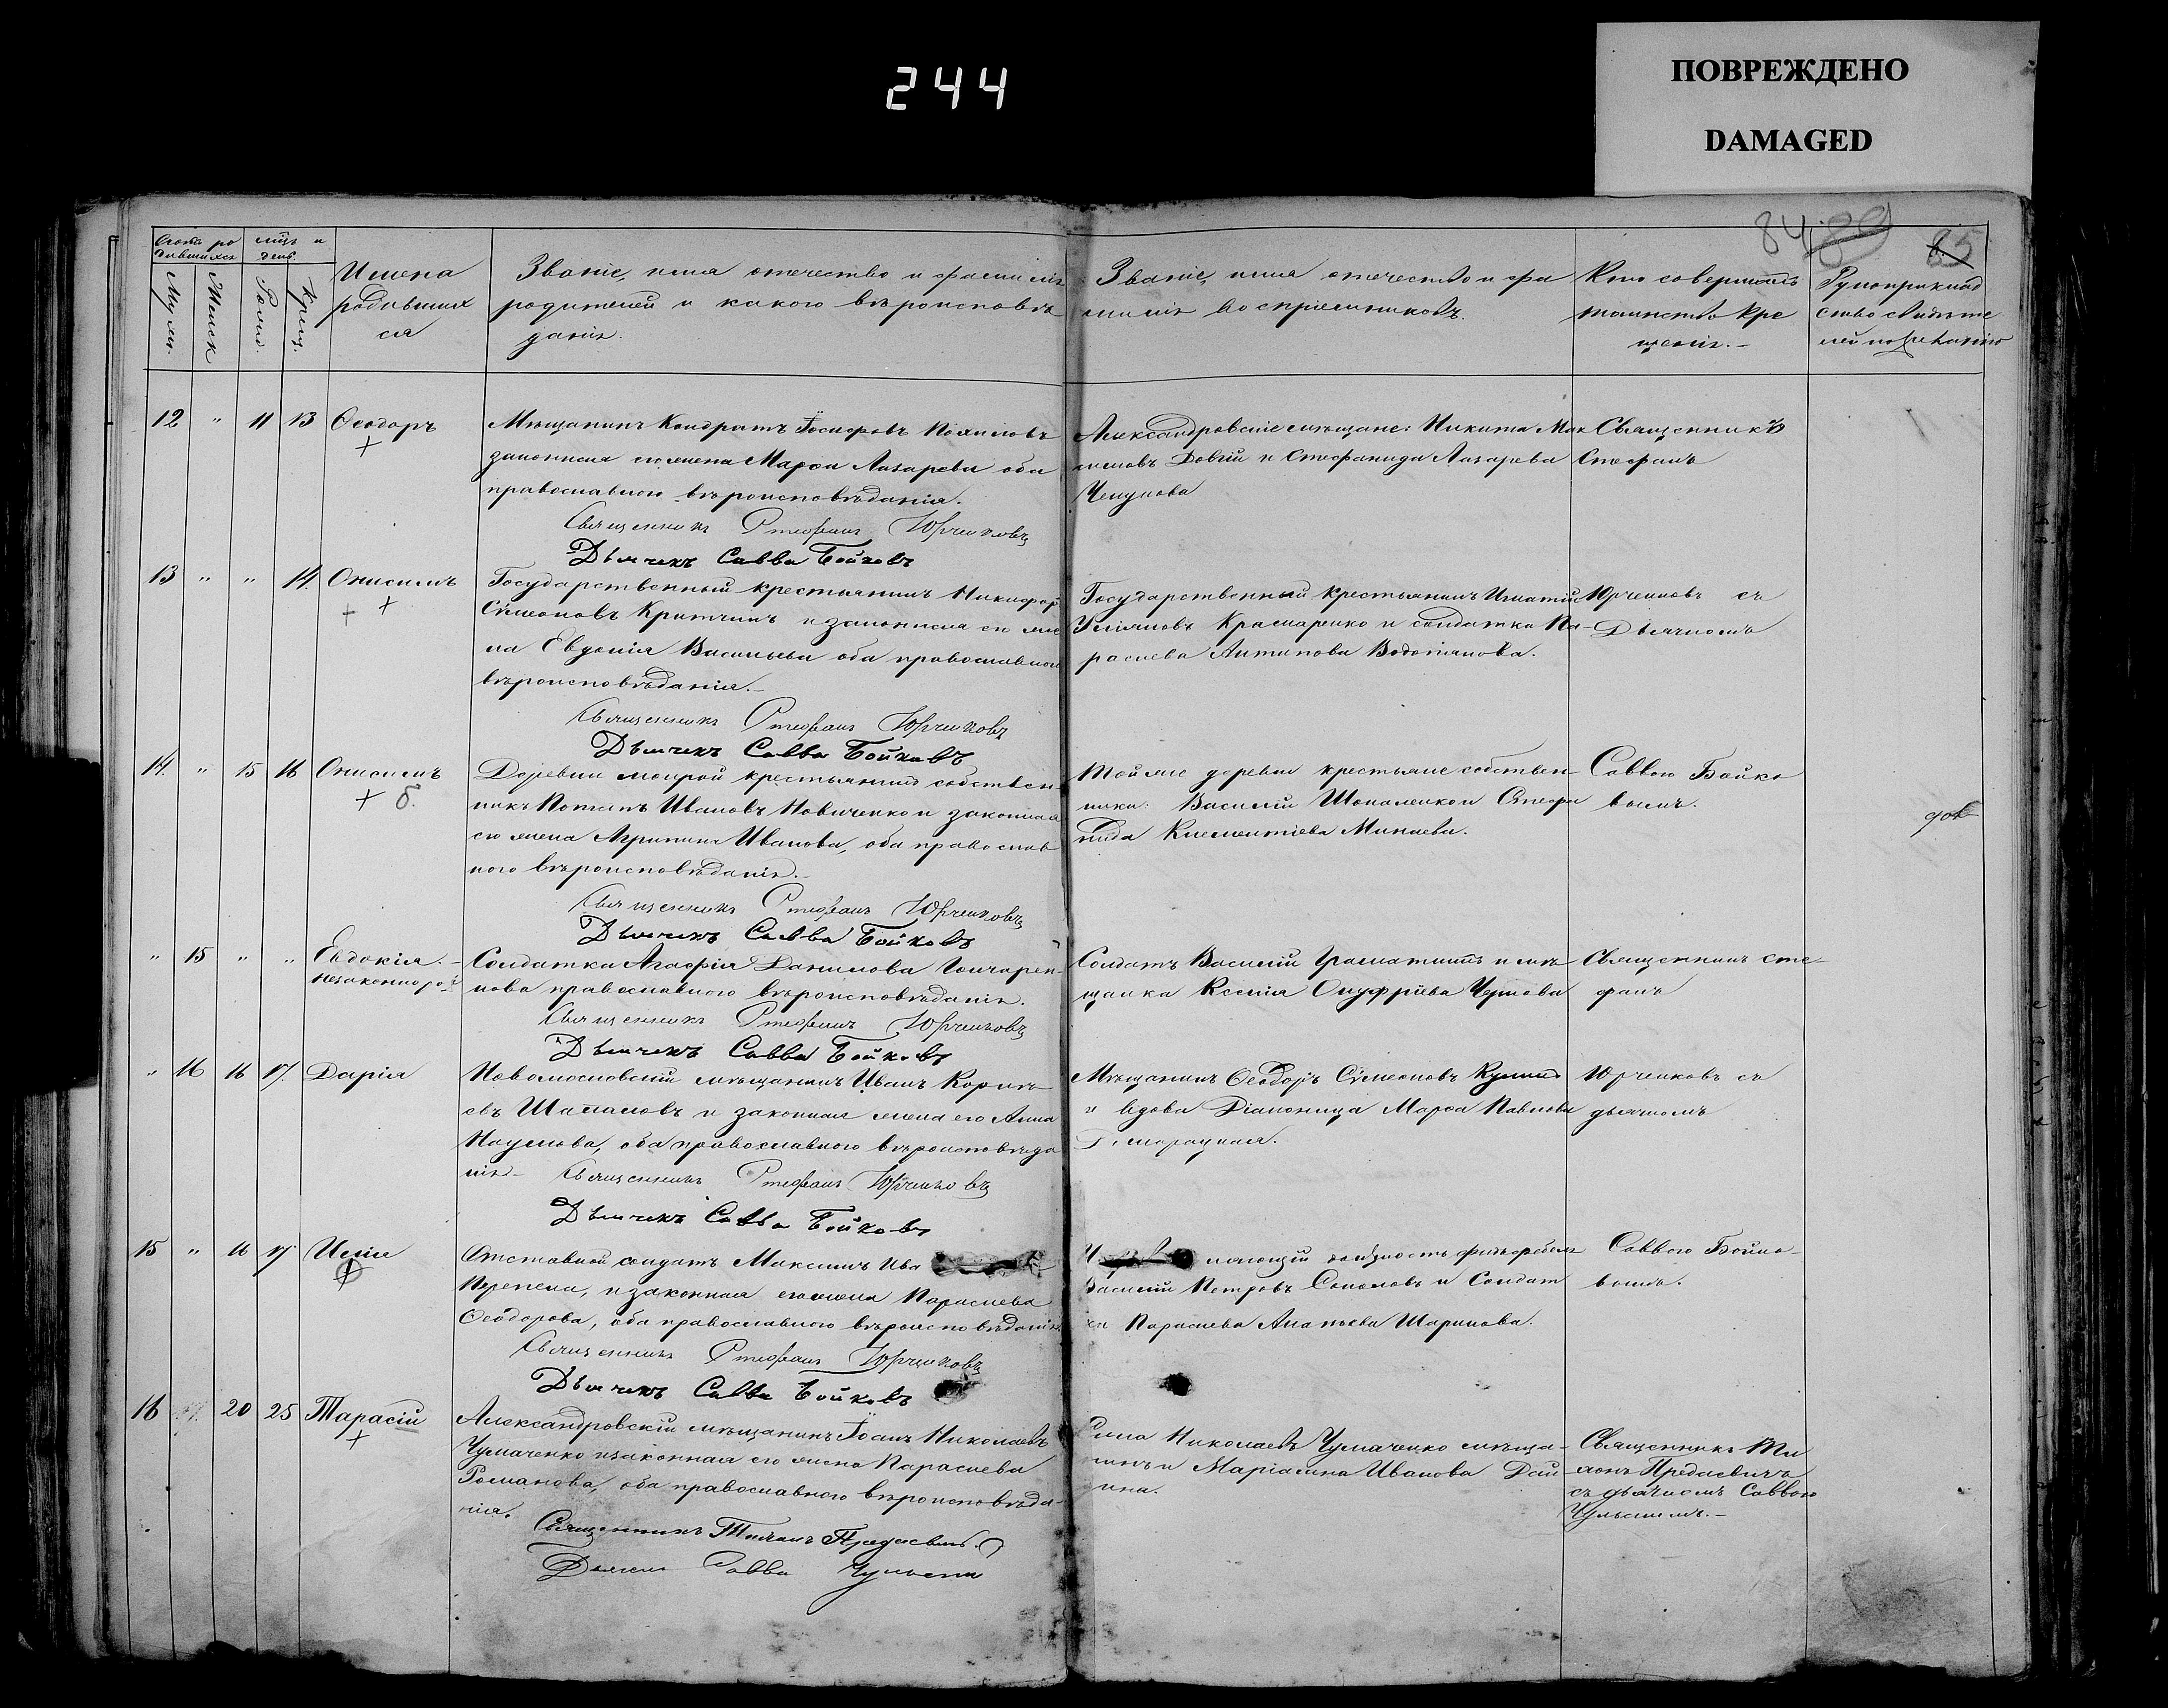 244
ПОВРЕЖДЕНО
DAMAGED
84
89
85
Счетъ ро
дившихся
мѣсъ и
день.
Муж.
Женск
Рожд.
Крещ.
Имена
родивших
ся
Званіе, имя отечество и фамилія
родителей и какого вѣроисповѣ
данія.
Званіе, имя отечество и фа
милія воспріемниковъ.
Кто совершалъ
таинство кре
щенія.-
Рукоприклад
ство свидѣте
лей по желанію
12 " 11 13 Ѳеодоръ
Мѣщанинъ Кондратъ Іосифовъ
законная его жена Марѳа Лазарева оба
православнаго вѣроисповѣданія.
Священникъ Стефанъ Юрченковъ
Дьячекъ Савва Бойковъ
Александровскіе мѣщане: Никита Мак
симовъ Довгій и Стефанида Лазарева
Священникъ
Стефанъ
13 " " 14. Онисимъ
Государственный крестьянинъ Никифоръ
Сѵмеоновъ и законная его же
на Евдокія Васильева оба православнаго
вѣроисповѣданія.-
Священникъ Стефанъ Юрченковъ
Дьячекъ Савва Бойковъ
Государственный крестьянинъ Игнатій
Красnаренко и солдатка Па-
раскева Антипова
Юрченковъ съ
Дьячкомъ
14. " 15 16 Онисимъ
б.
Деревни Мокрой крестьянинъ собствен
никъ Потапъ Ивановъ Новиченко и законная
его жена Агрипина Иванова, оба православ
ного вѣроисповѣданія.-
Священникъ Стефанъ Юрченковъ
Дьячекъ Савва Бойковъ
Той же деревни крестьяне собствен-
ники: Василій и Стефа
нида Клементіева Минаева.
Саввою Бойко
вымъ.
" 15 " " Евдокія.-
незаконнор.
Солдатка Агафія Данилова Гончарен-
кова православнаго вѣроисповѣданія.
Священникъ Стефанъ Юрченковъ
Дьячекъ Савва Бойковъ
Солдатъ Василій и мѣ
щанка Ксенія Онуфріева Чернова
Священникъ Сте-
фанъ
" 16 16 17. Дарія
Новомосковскій мѣщанинъ Иванъ Корнѣ-
евъ Шаталовъ и законная жена его Анна
Наумова, оба православнаго вѣроисповѣда
нія- Священникъ Стефанъ Юрченковъ
Дьячекъ Савва Бойковъ
Мѣщанинъ Ѳеодоръ Сѵмеоновъ
и вдова Діаконица Марѳа Павлова
Юрченковъ съ
дьячкомъ
15 " 16 17
Отставной солдатъ Максимъ Ива
Перепека, и законная его жена Параскева
Ѳеодорова, оба православнаго вѣроисповѣданія
Священникъ Стефанъ Юрченковъ
Дьячекъ Савва Бойковъ
должность фельдфебеля
Василій Петровъ Соколовъ и Солдат
ка Параскева Ананьева Шарикова.
Саввою Бойко-
вымъ.
16 20 25 Тарасій
Александровскій мѣщанинъ Іоанъ Николаевъ
Чумаченко и законная его жена Параскева
Романова, оба православнаго вѣроисповѣда-
нія.
Священникъ Тихонъ
Дьячекъ Савва
Николаевъ Чумаченко мѣща-
нинъ и Маріамна Иванова
Священникъ Ти
хонъ
съ дьячкомъ Саввою